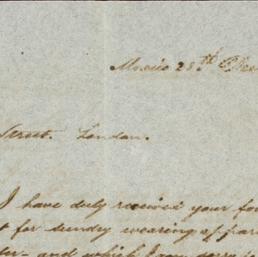 Mexico 25th Dec
Street. London.
I have duly received your fa
t for sundry wearing appar
ter - and which I am sorry